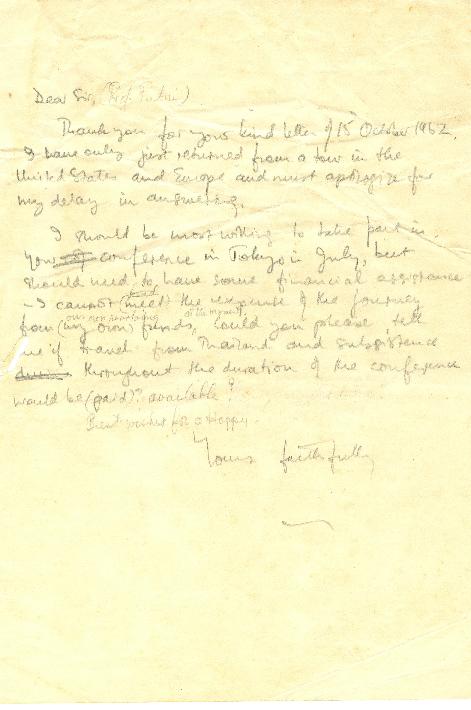 Dear Sir, (Prof. )
Thank you for your kind letter of 15 October 1962.
I have only just returned from a tour in the
United States and Europe and must apologize for
my delay in answering.
I should be most willing to take part in
your conference in Tokyo in July, but
should need to have some financial assistance
- I cannot (meet) the expense of the journey
our own at the moment
from (my own) funds, could you please tell
me if travel from Thailand and subsistence
throughout the duration of the conference
would be (paid)? available?
Best wishes for a Happy
Yours faithfully